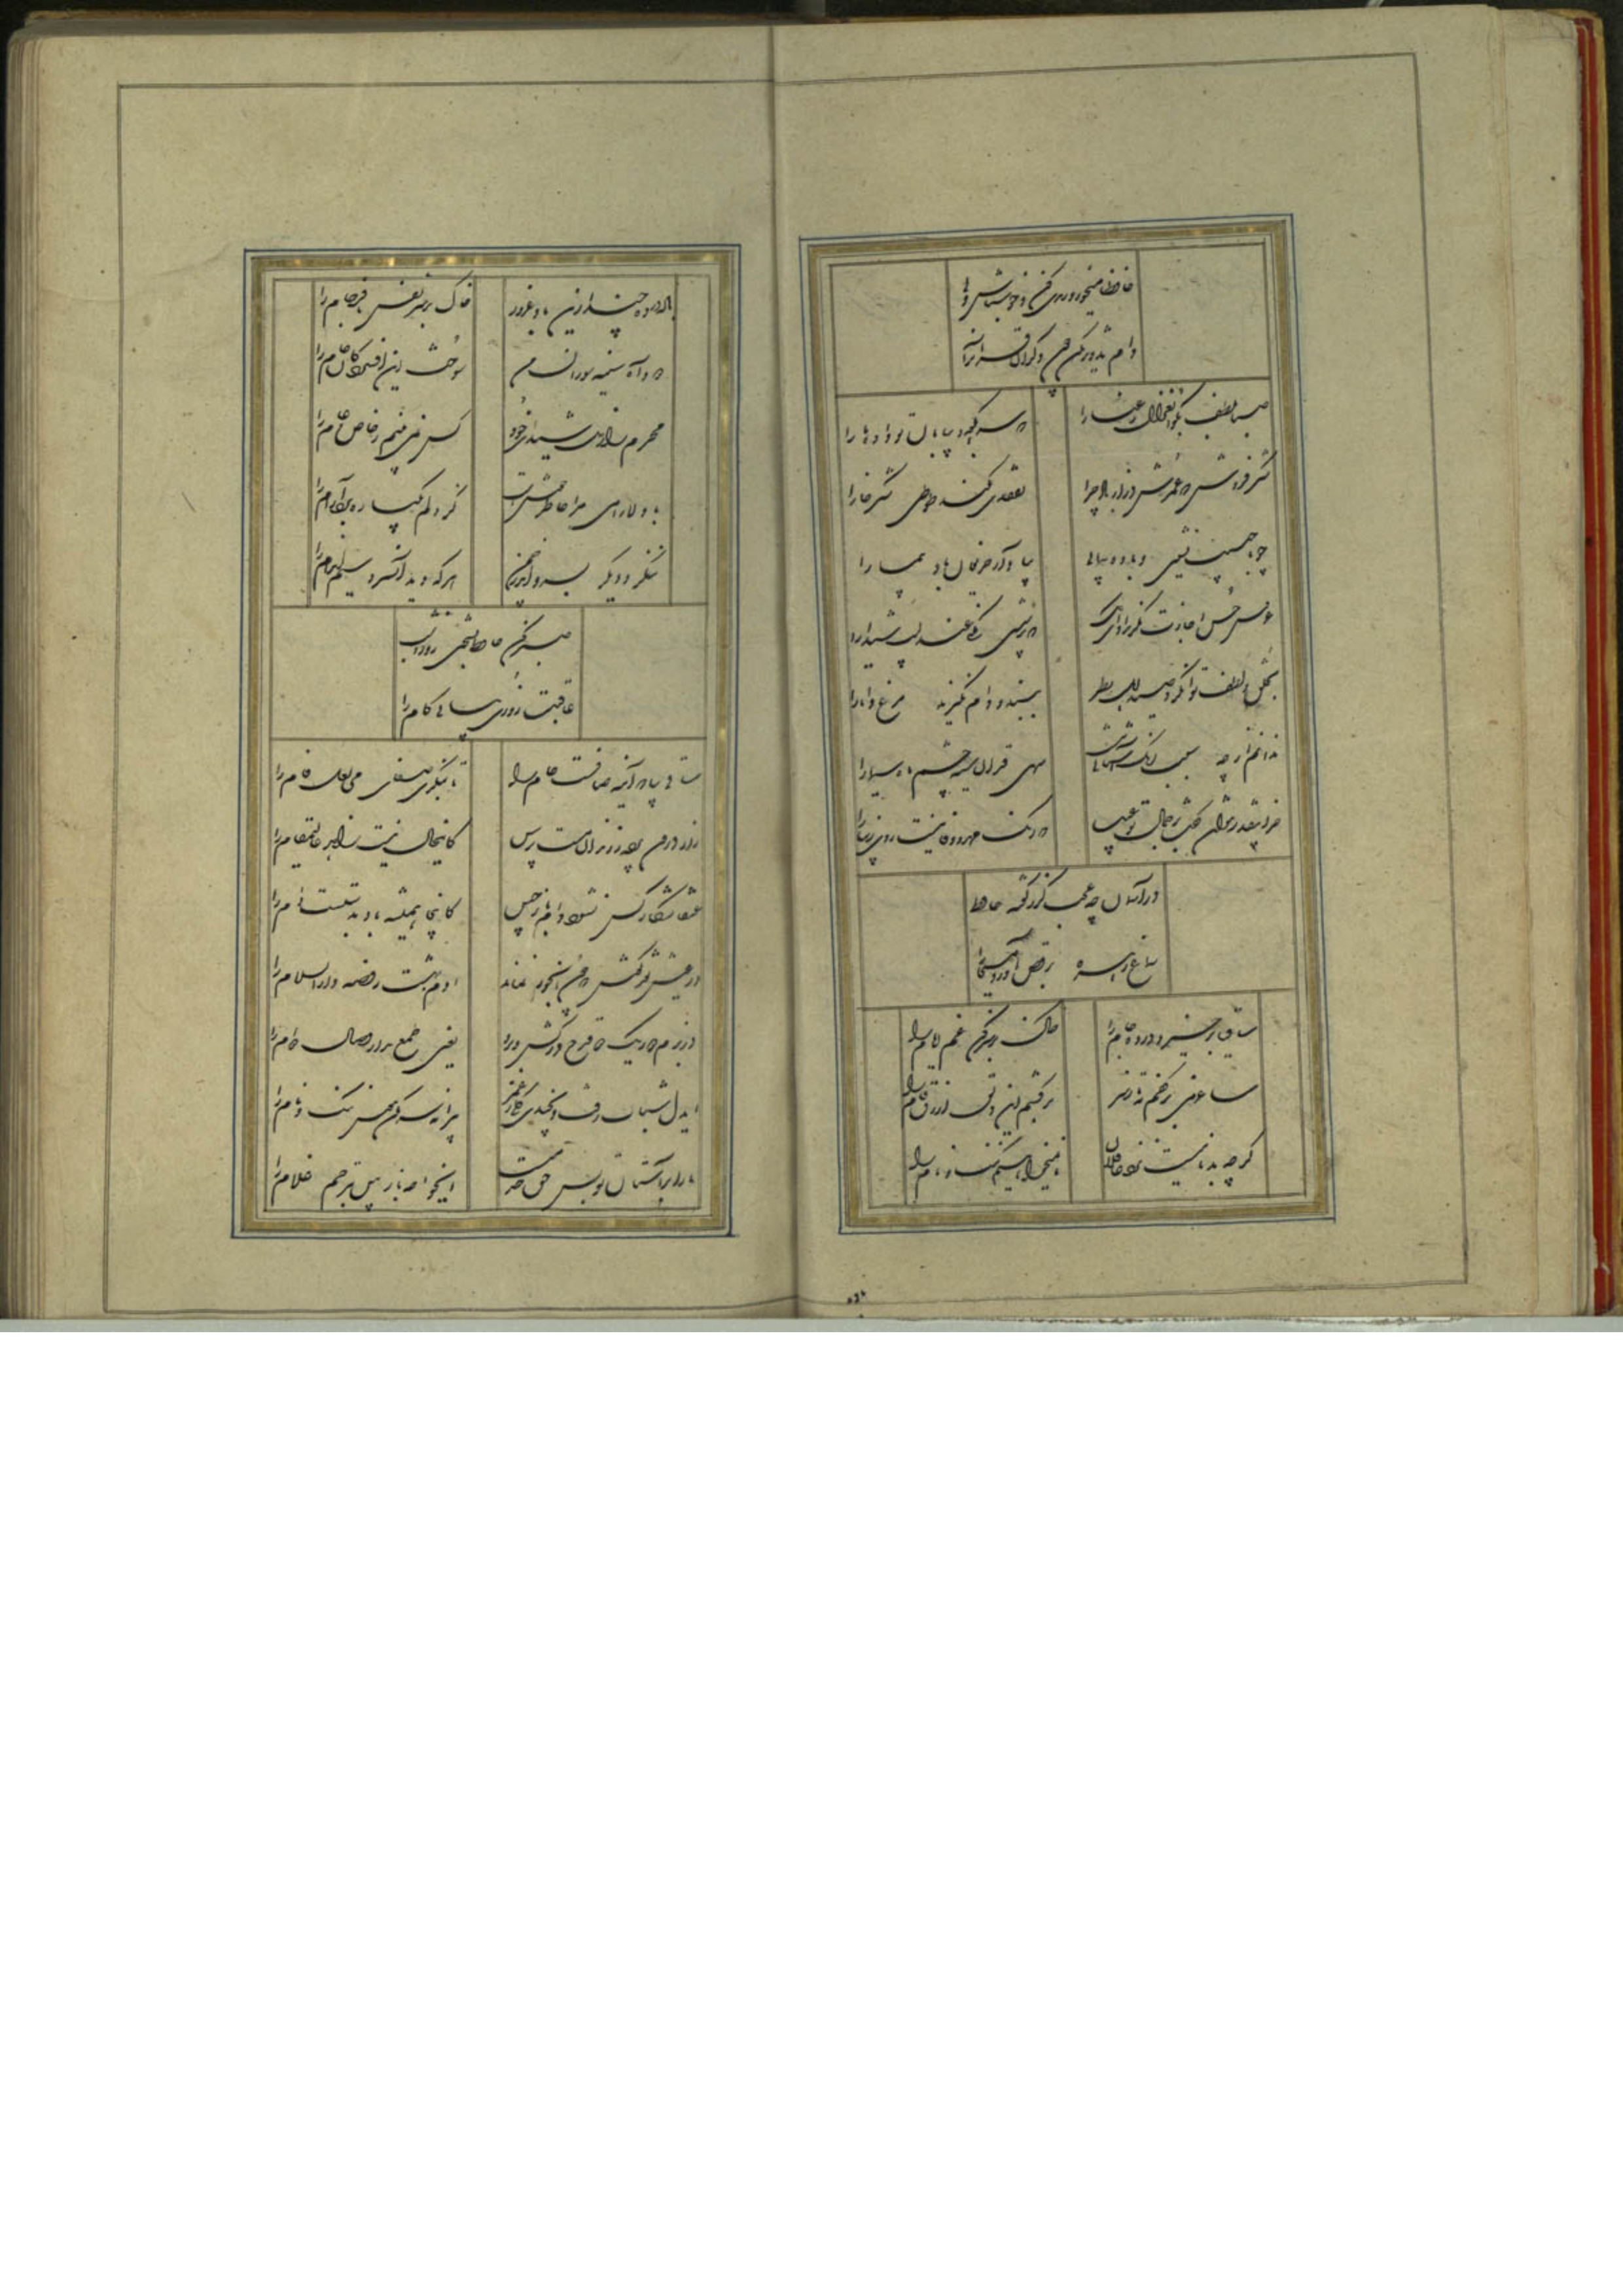 حافظا میخور و رندی کن و خوش باش ولی
دام تزویر مکن چون دگران قرآن را
صبا بلطف بگو آن غزال رعنا را
که سر بکوه و بیابان تو داده ما را
شکر فروش که عمرش دراز باد چرا
تفقدی نکند طوطی شکر خا را
چو با حبیب نشینی و باده پیمایی
بیاد آر حریفان باد پیما را
غرور حسن اجازت مگر نداد ای گل
که پرسشی نکنی عندلیب شیدا را
بخلق و لطف توان کرد صید اهل نظر
ببند و دام نگیرند مرغ دانا را
ندانم از چه سبب رنگ آشنایی نیست
سهی قدان سیه چشم ماه سیما را
جز اینقدر نتوان گفت در جمال تو عیب
که رنگ مهر و وفا نیست روی زیبا را
در آسمان چه عجب گر ز گفته حافظ
سماع زهره برقص آورد مسیحا را
ساقیا برخیز و درده جام را
خاک بر سر کن غم ایام را
ساغر می بر کفم نه تا ز بر
بر کشم این دلق ازرق فام را
گرچه بدنامیست نزد عاقلان
ما نمیخواهیم ننگ و نام را
باده درده چند ازین باد غرور
خاک بر سر نفس نافرجام را
دود آه سینه سوزان من
سوخت این افسردگان خام را
محرم راز دل شیدای خود
کس نمی بینم ز خاص و عام را
با دلارامی مرا خاطر خوشست
کز دلم یکباره برد آرام را
ننگرد دیگر بسرو اندر چمن
هر که دید آن سرو سیم اندام را
صبر کن حافظ بسختی روز و شب
عاقبت روزی بیابی کام را
ساقی بیا که آینه صافیست جام را
تا بنگری صفای می لعل فام را
راز درون پرده ز رندان مست پرس
کاین حال نیست زاهد عالی مقام را
عنقا شکار کس نشود دام باز چین
کانجا همیشه باد بدستست دام را
در عیش نقد کوش که چون آبخور نماند
آدم بهشت روضه دار السلام را
در بزم دور یک دو قدح در کش و برو
یعنی طمع مدار وصال مدام را
ای دل شباب رفت و نچیدی گلی ز عمر
پیرانه سر مکن هنری ننگ و نام را
ما را بر آستان تو بس حق خدمتست
ای خواجه باز بین بترحم غلام را